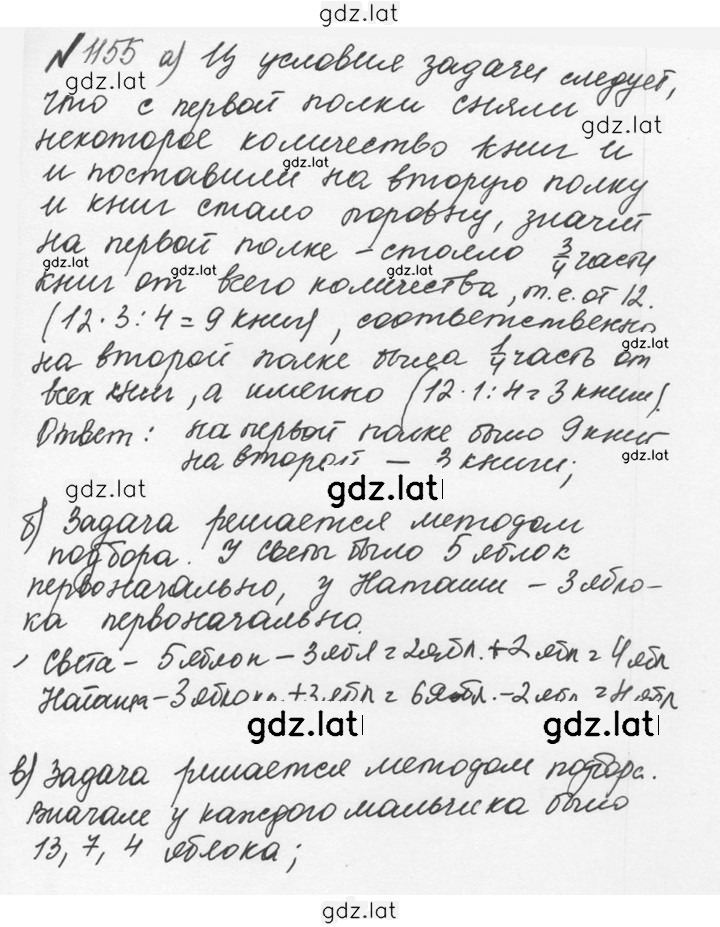 gdz.lat
№ 1155 а) Из условия задачи следует,
gdz.lat
что с первой полки сняли
gdz.lat
некоторое количество книг и
gdz.lat
и поставили на вторую полку
и книг стало поровну, значит
на первой полке – стояло 3/4 части
gdz.lat gdz.lat gdz.lat
книг от всего количества, т.е. от 12.
(12 · 3 : 4 = 9 книг), соответственно
gdz.lat
на второй полке была 1/4 часть от
всех книг, а именно (12 · 1 : 4 = 3 книги).
Ответ: на первой полке было 9 книг
gdz.lat
на второй – 3 книги;
gdz.lat gdz.lat
б) Задача решается методом
подбора. У Светы было 5 яблок
первоначально, у Наташи – 3 ябло-
ка первоначально.
Света – 5 яблок – 3 ябл = 2 ябл. + 2 ябл = 4 ябл
Наташа – 3 яблока + 3 ябл = 6 ябл. – 2 ябл = 4 ябл
gdz.lat gdz.lat
в) Задача решается методом подбора.
Вначале у каждого мальчика было
13, 7, 4 яблока;
gdz.lat